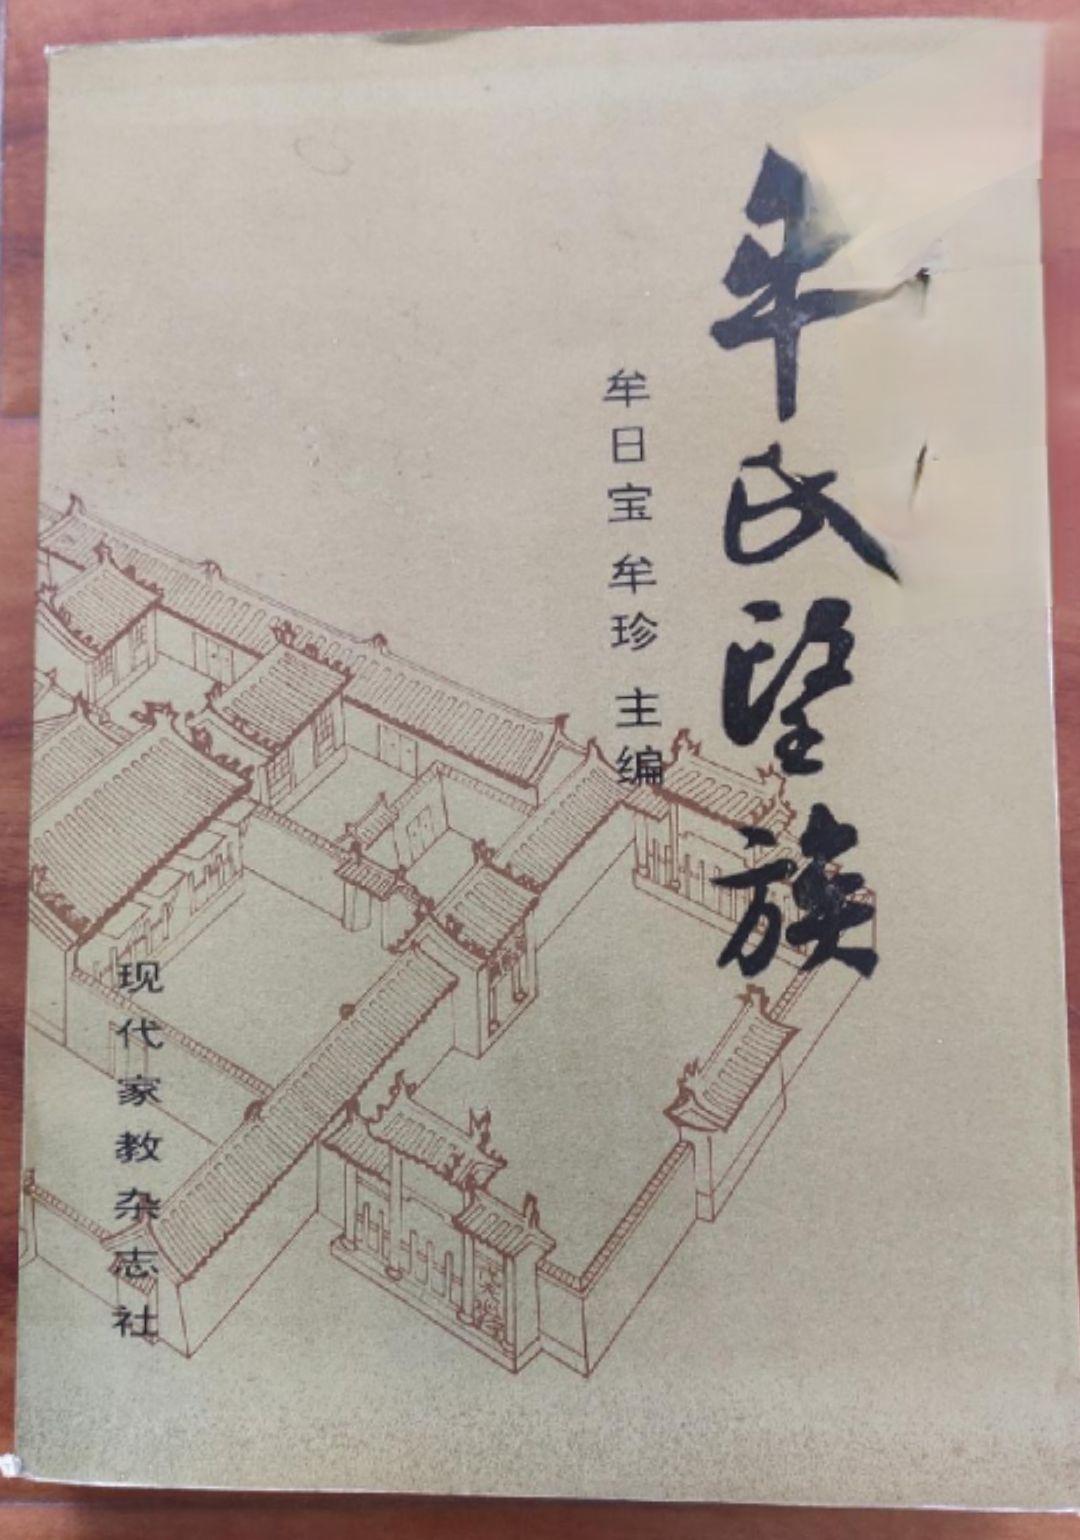 牟氏望族
牟日宝 牟珍 主编
现代家教杂志社